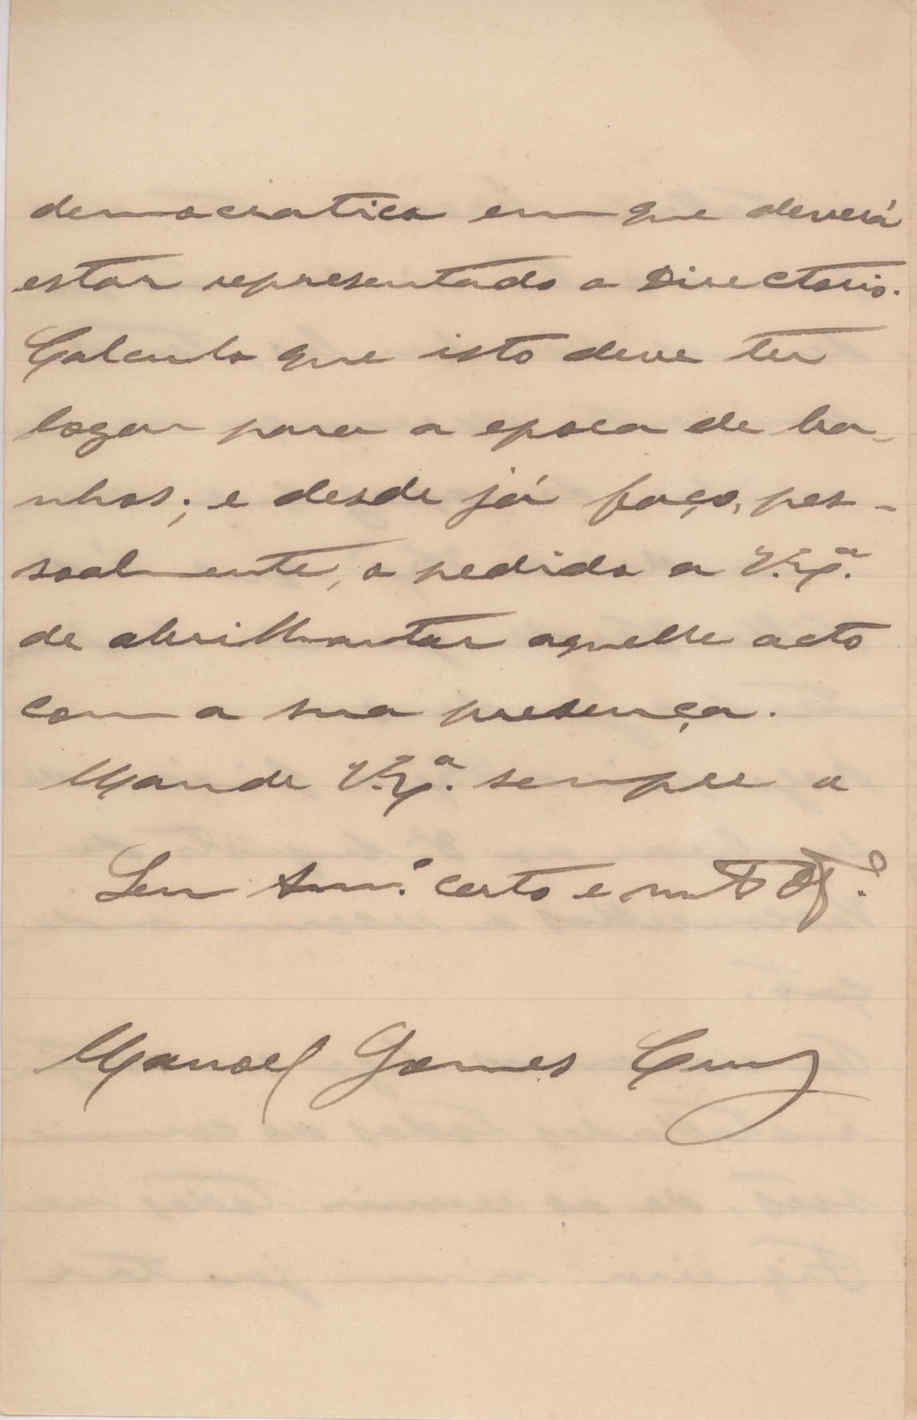 democratica em que deverá
estar representado o Directorio.
Calculo que isto deve ter
logar para a epoca de ba-
nhos; e desde já faço, pes-
soalmente, o pedido a V. Exª.
de abrilhantar aquelle acto
com a sua presença.
Mande V. Exª. sempre o
Seu Amº. certo e mtº
Manoel Gomes Cruz